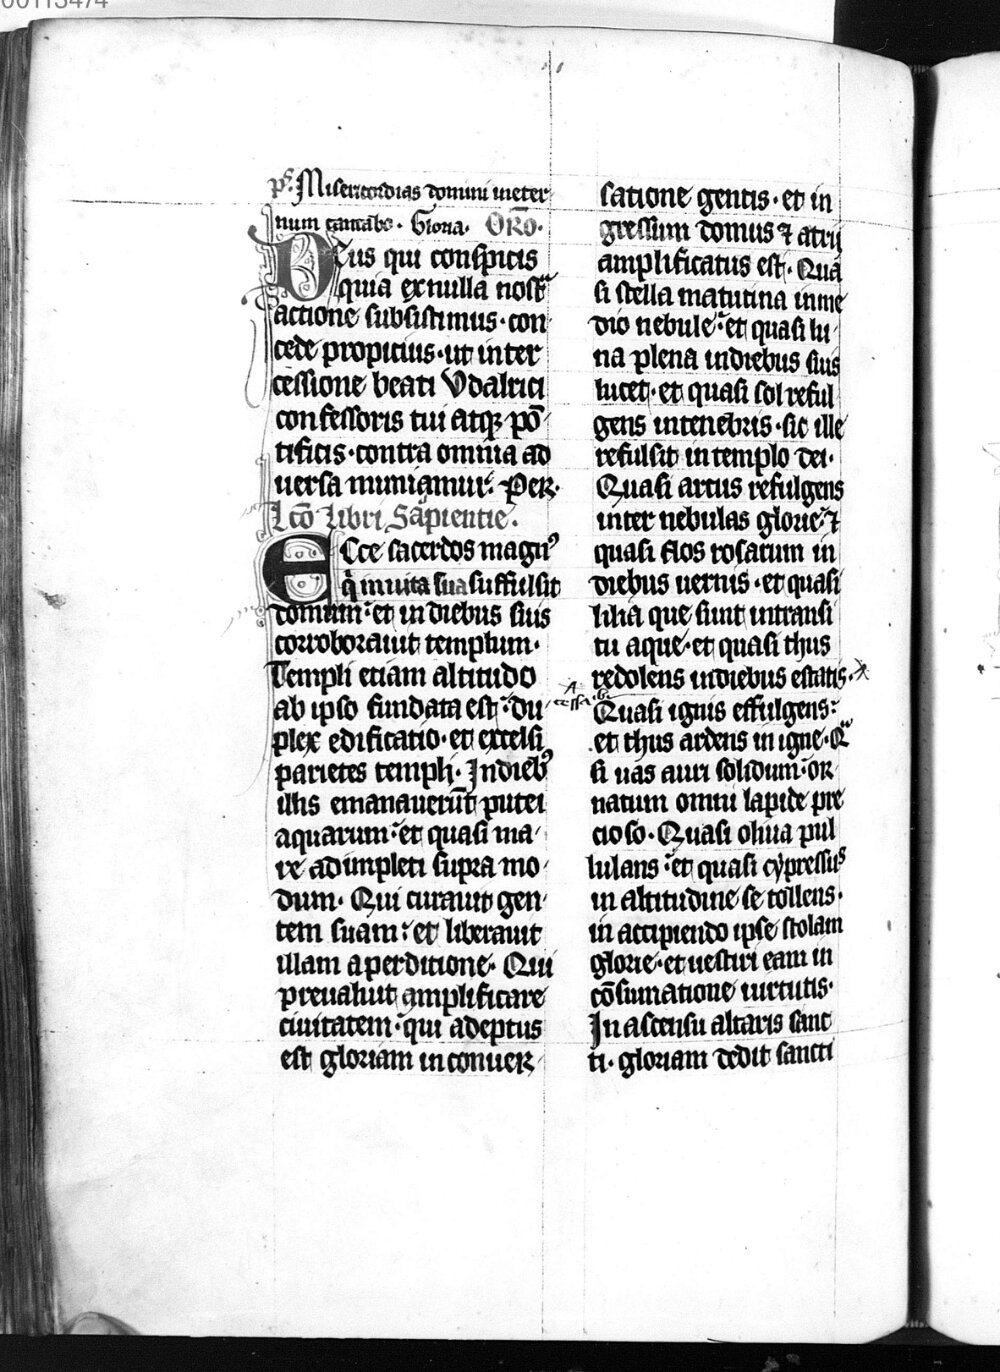 00113474
pˢ. Misericordias domini ineter
num cantabo. Gloria. Oro̅.
Deus qui conspicis
quia exnulla nostᷓ
actione subsistimus. con
cede propicius. ut inter
cessione beati Vdalrici
confessoris tui atqꝫ po̅
tificis. contra omnia ad
uersa muniamur. Per.
Lco̅ libri Sapientie.
Ecce sacerdos magnꝰ
qͥ inuita sua suffulsit
domum: et in diebus suis
corroborauit templum.
Templi etiam altitudo
ab ipso fundata est: du
plex edificatio. et excelsi
parietes templi. In diebꝰ
illis emanaueru̅t putei
aquarum: et quasi ma
re adimpleti supra mo
dum. Qui curauit gen
tem suam: et liberauit
illam aperditione. Qui
preualuit amplificare
ciuitatem. qui adeptus
est gloriam in conuer
satione gentis. et in
gressum domus ⁊ atrij
amplificatus est. Qua
si stella matutina inme
dio nebule: et quasi lu
na plena indiebus suis
lucet. et quasi sol reful
gens intenebris. sic ille
refulsit in templo dei.
Quasi arcus refulgens
inter nebulas glorie: ⁊
quasi flos rosarum in
diebus uernis. et quasi
lilia que sunt intransi
tu aque. et quasi thus
redolens indiebus estatis.
Quasi ignis effulgens:
et thus ardens in igne. Qᷓ
si uas auri solidum: or
natum omni lapide pre
cioso. Quasi oliua pul
lulans: et quasi cypressus
in altitudine se tollens.
in accipiendo ipse stolam
glorie. et uestiri eam in
co̅sumatione uirtutis.
In ascensu altaris sanc
ti. gloriam dedit sancti